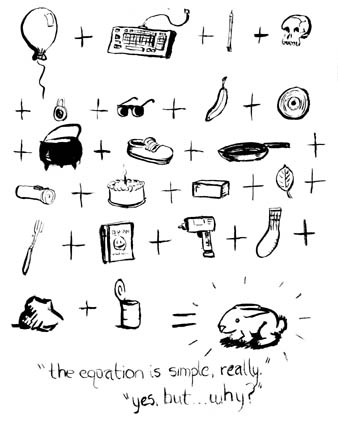 "the equation is simple, really."
"yes, but...why?"